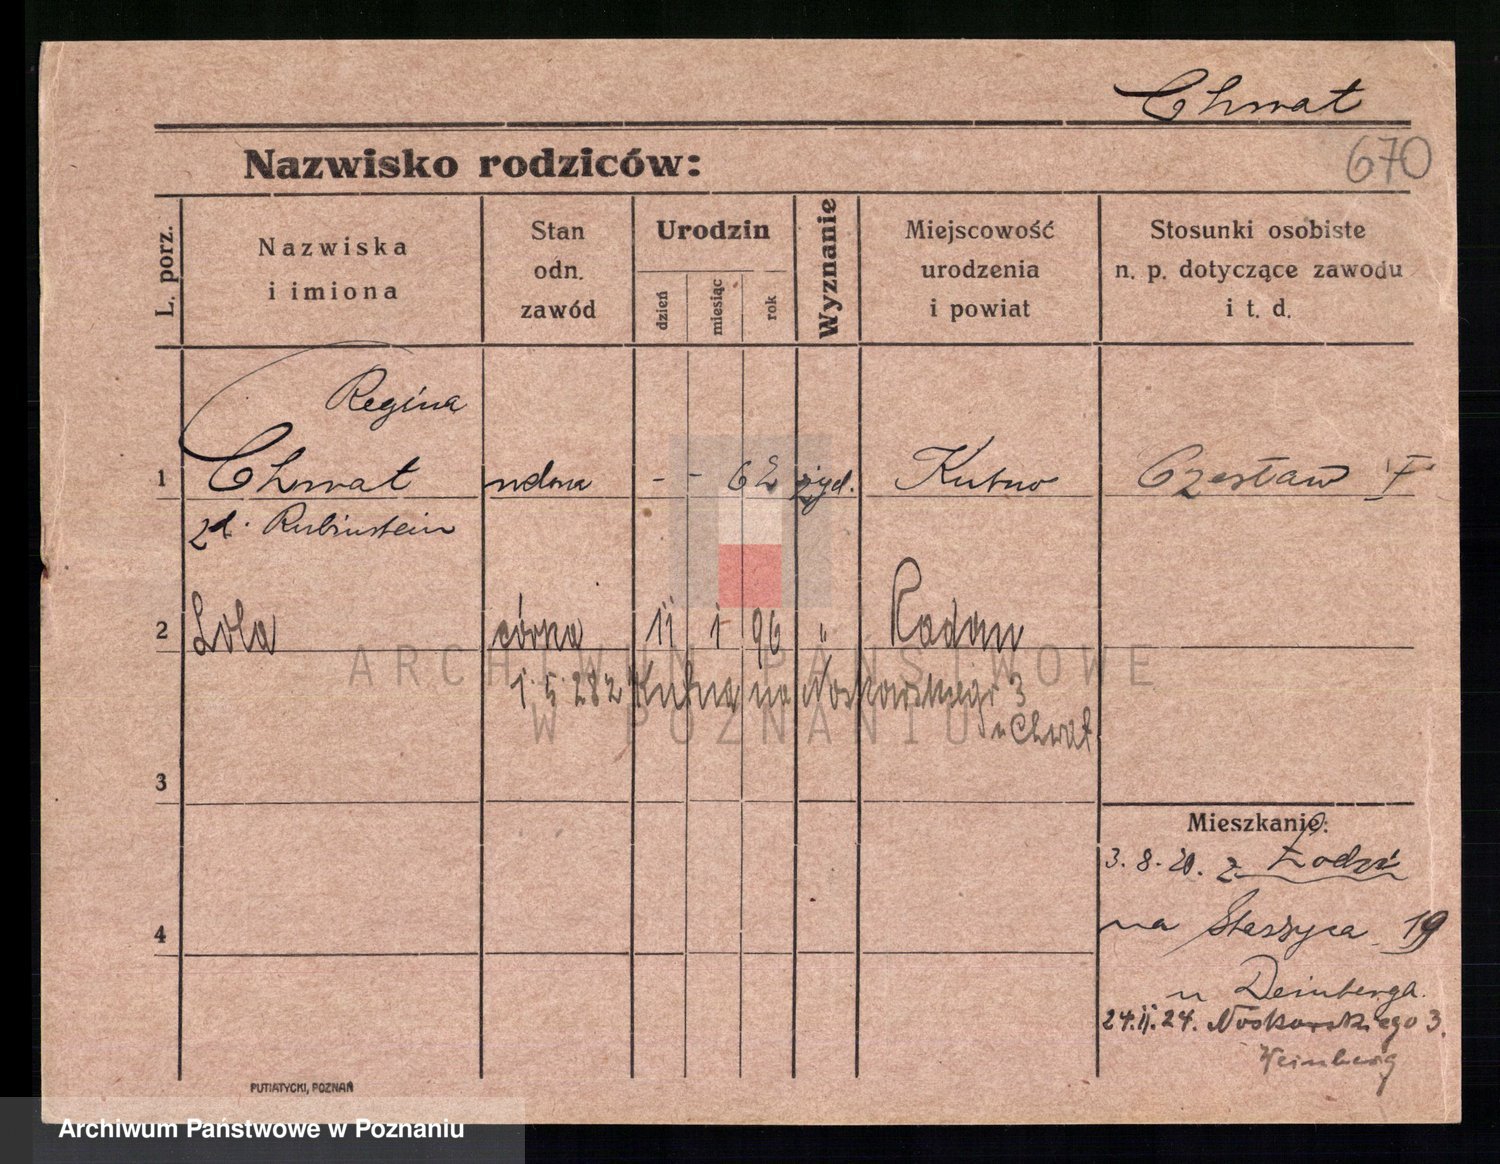 Chwat
Nazwisko rodziców:
670
L. porz.
Nazwiska
i imiona
Stan
odn.
zawód
Urodzin
dzień
miesiąc
rok
Wyznanie
Miejscowość
urodzenia
i powiat
Stosunki osobiste
n. p. dotyczące zawodu
i t. d.
Regina
1 Chwat wdowa - - 62 żyd. Kutno Czesław
zd. Rubinstein
2 Lola córka 11 1 96 " Radom
1.5.28 z Kutna na Noskowskiego 3
u Chwat
3
Mieszkanie:
3. 8. 20. z Łodzi
4
na Staszyca 19
u Deinberga.
24.II.24. Noskowskiego 3.
Weinberg
PUTIATYCKI, POZNAŃ
ARCHIWUM PAŃSTWOWE
W POZNANIU
Archiwum Państwowe w Poznaniu